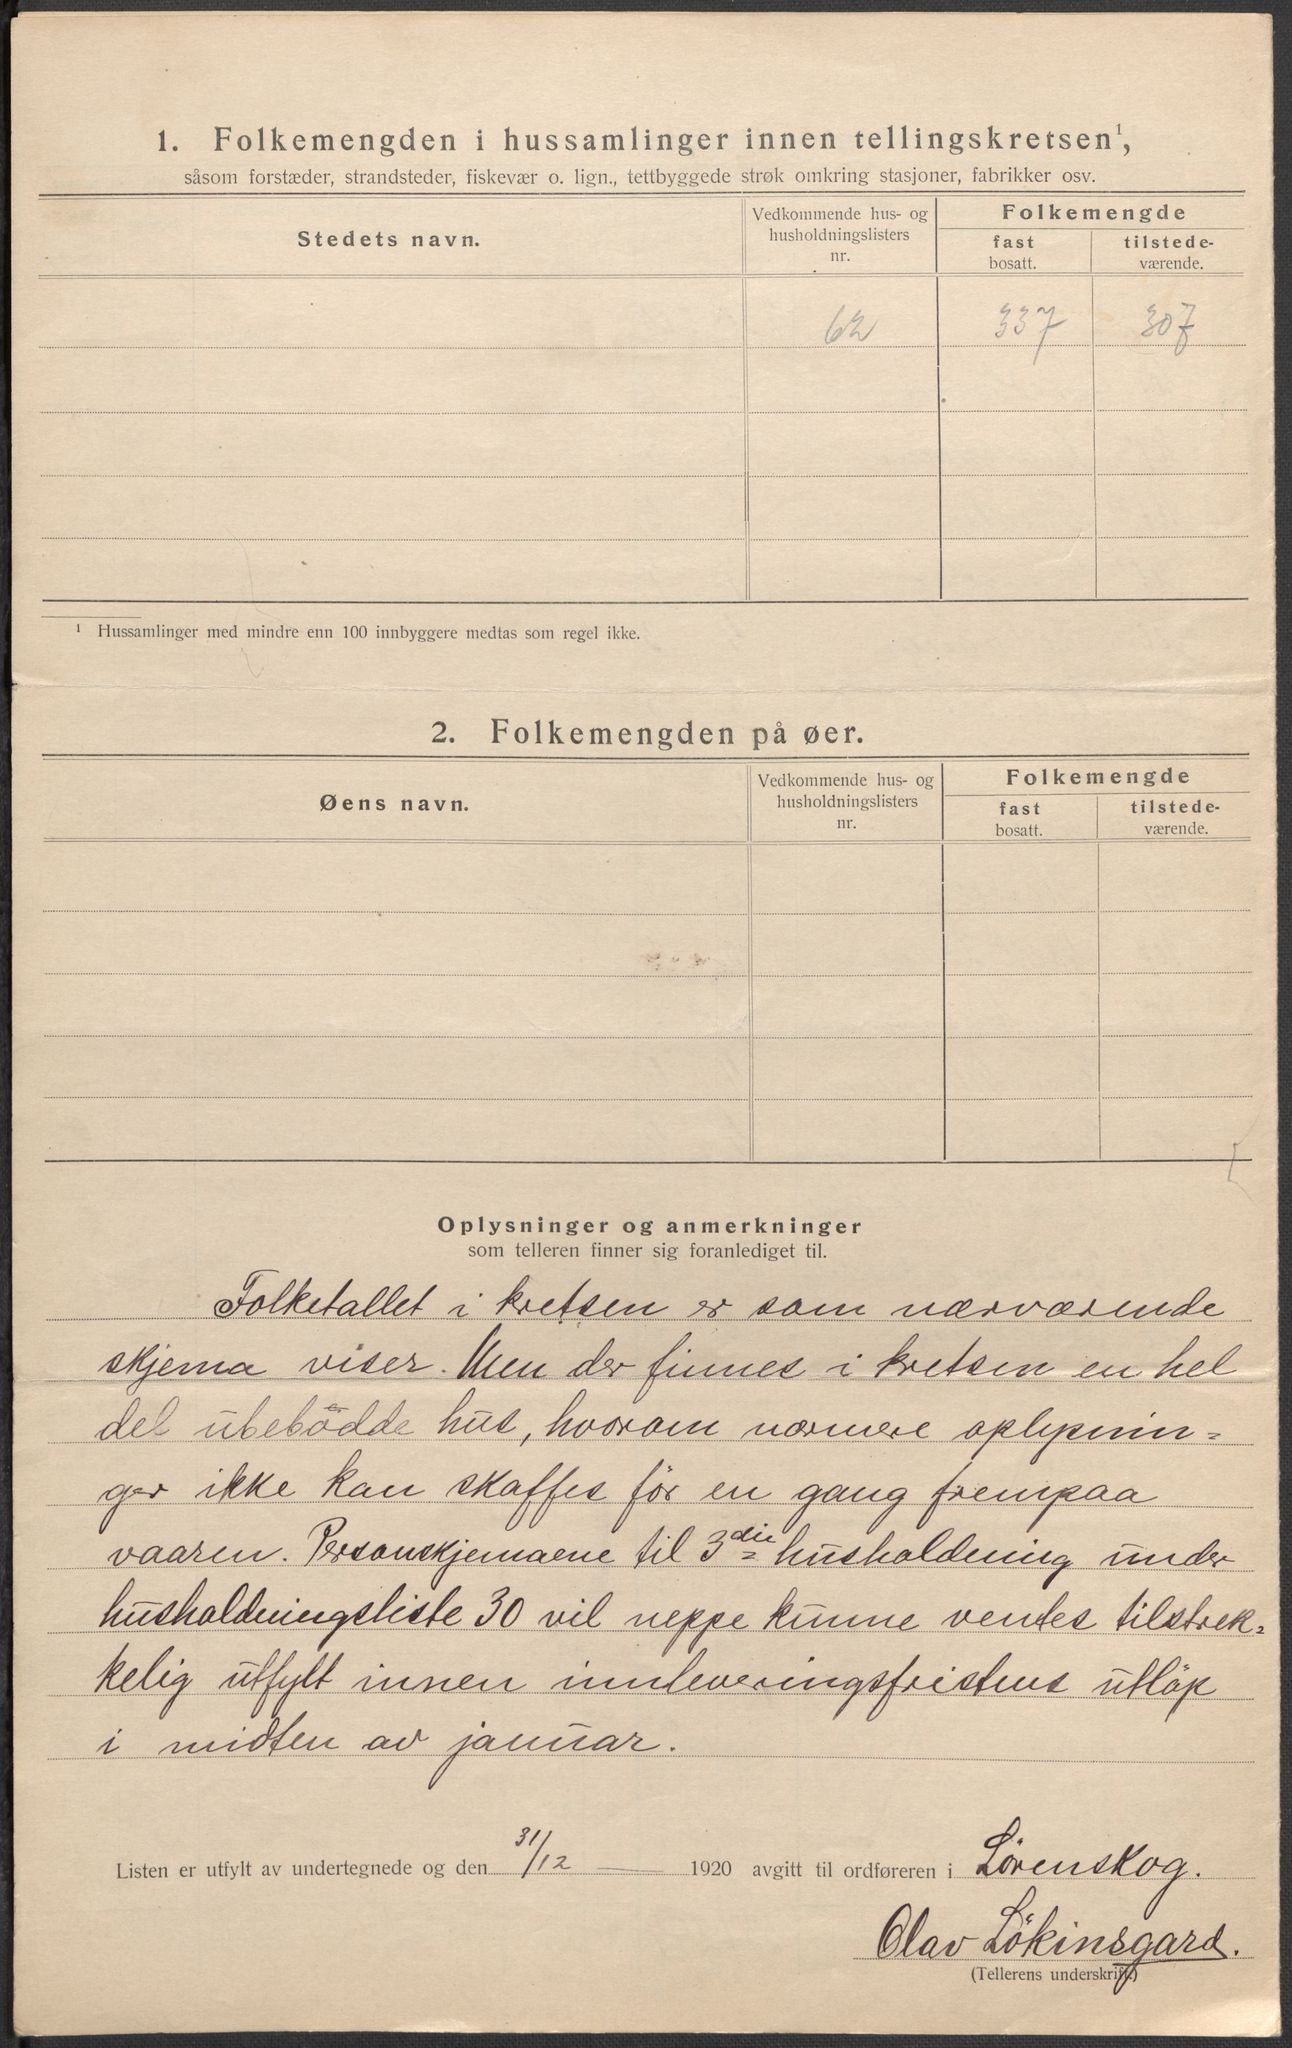 1. Folkemengden i hussamlinger innen tellingskretsen¹,
såsom forstæder, strandsteder, fiskevær o. lign., tettbyggede strøk omkring stasjoner, fabrikker osv.
Stedets navn.
Vedkommende hus- og
husholdningslisters
nr.
Folkemengde
fast
bosatt.
tilstede-
værende.
62 337 307
¹ Hussamlinger med mindre enn 100 innbyggere medtas som regel ikke.
2. Folkemengden på øer.
Øens navn.
Vedkommende hus- og
husholdningslisters
nr.
Folkemengde
fast
bosatt.
tilstede-
værende.
Oplysninger og anmerkninger
som telleren finner sig foranlediget til.
Folketallet i kretsen er som nærværende
skjema viser. Men der finnes i kretsen en hel
del ubebödde hus, hvorom nærmere oplysnin=
ger ikke kan skaffes før en gang frempaa
vaaren. Personskjemaene til 3die husholdning under
husholdningsliste 30 vil neppe kunne ventes tilstrek=
kelig utfylt innen innleveringsfristens utløp
i midten av januar.
Listen er utfylt av undertegnede og den 31/12 1920 avgitt til ordføreren i Lørenskog.
Olav Lökinsgard.
(Tellerens underskrift.)